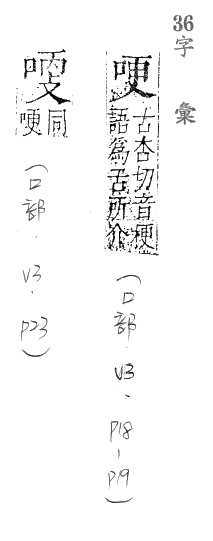 36
字彙
哽
古杏切音梗
語為舌所介
(口部.V3.P18-P19)
㖹
同
哽
(口部.V3.P23)